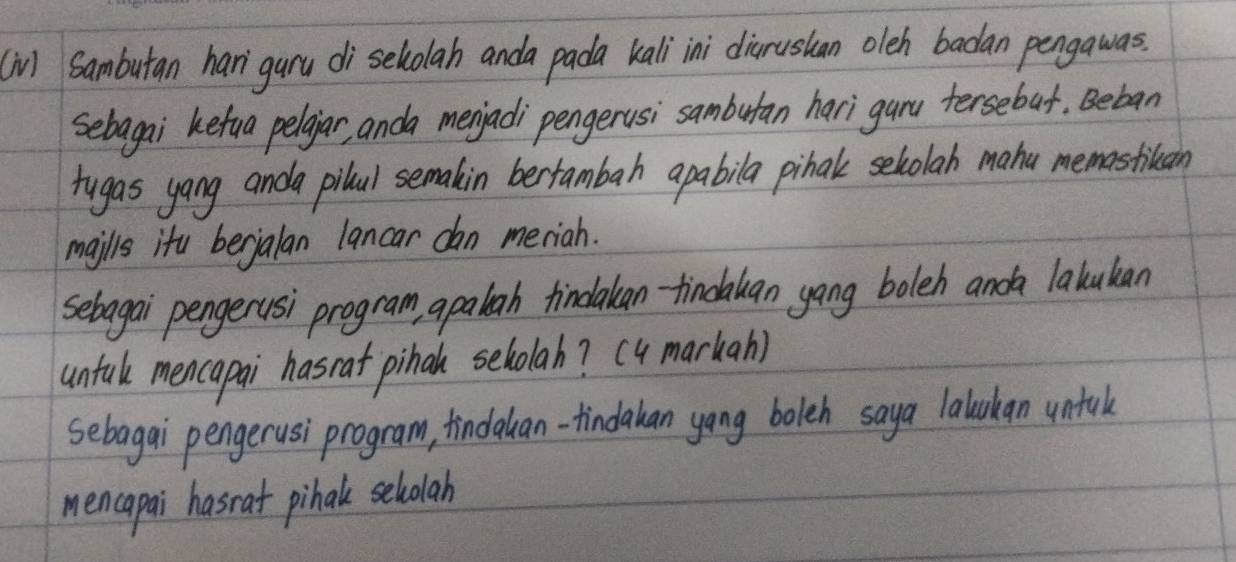 (iv) Sambutan hari guru di sekolah anda pada kali ini diuruskan oleh badan pengawas.
Sebagai ketua pelajar, anda menjadi pengerusi sambutan hari guru tersebut. Beban
tugas yang anda pikul semakin bertambah apabila pihak sekolah mahu memastikan
majlis itu berjalan lancar dan meriah.
Sebagai pengerusi program, apakah tindakan-tindakan yang boleh anda lakukan
untuk mencapai hasrat pihak sekolah? (4 markah)
Sebagai pengerusi program, tindakan-tindakan yang boleh saya lakukan untuk
mencapai hasrat pihak sekolah